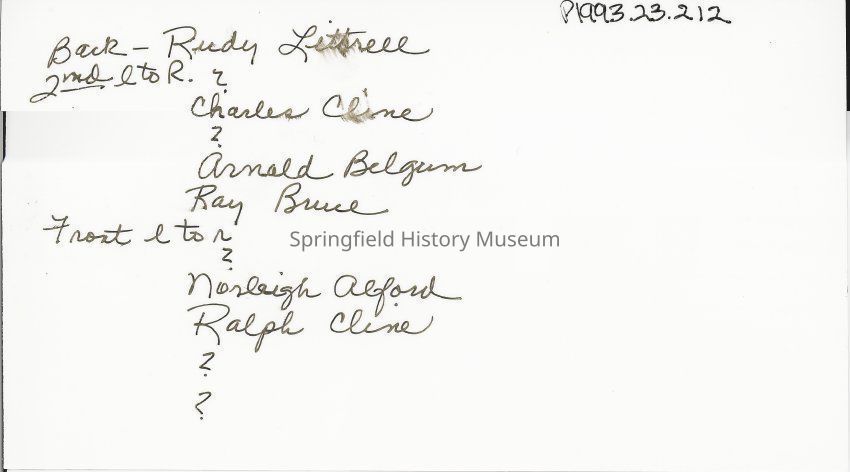 P1993.23.212
Back - Rudy Littrell
2nd l to R. ?
Charles Cline
?
Arnold Belgum
Ray Bruce
Front l to r
Springfield History Museum
?
Norleigh Alford
Ralph Cline
?
?